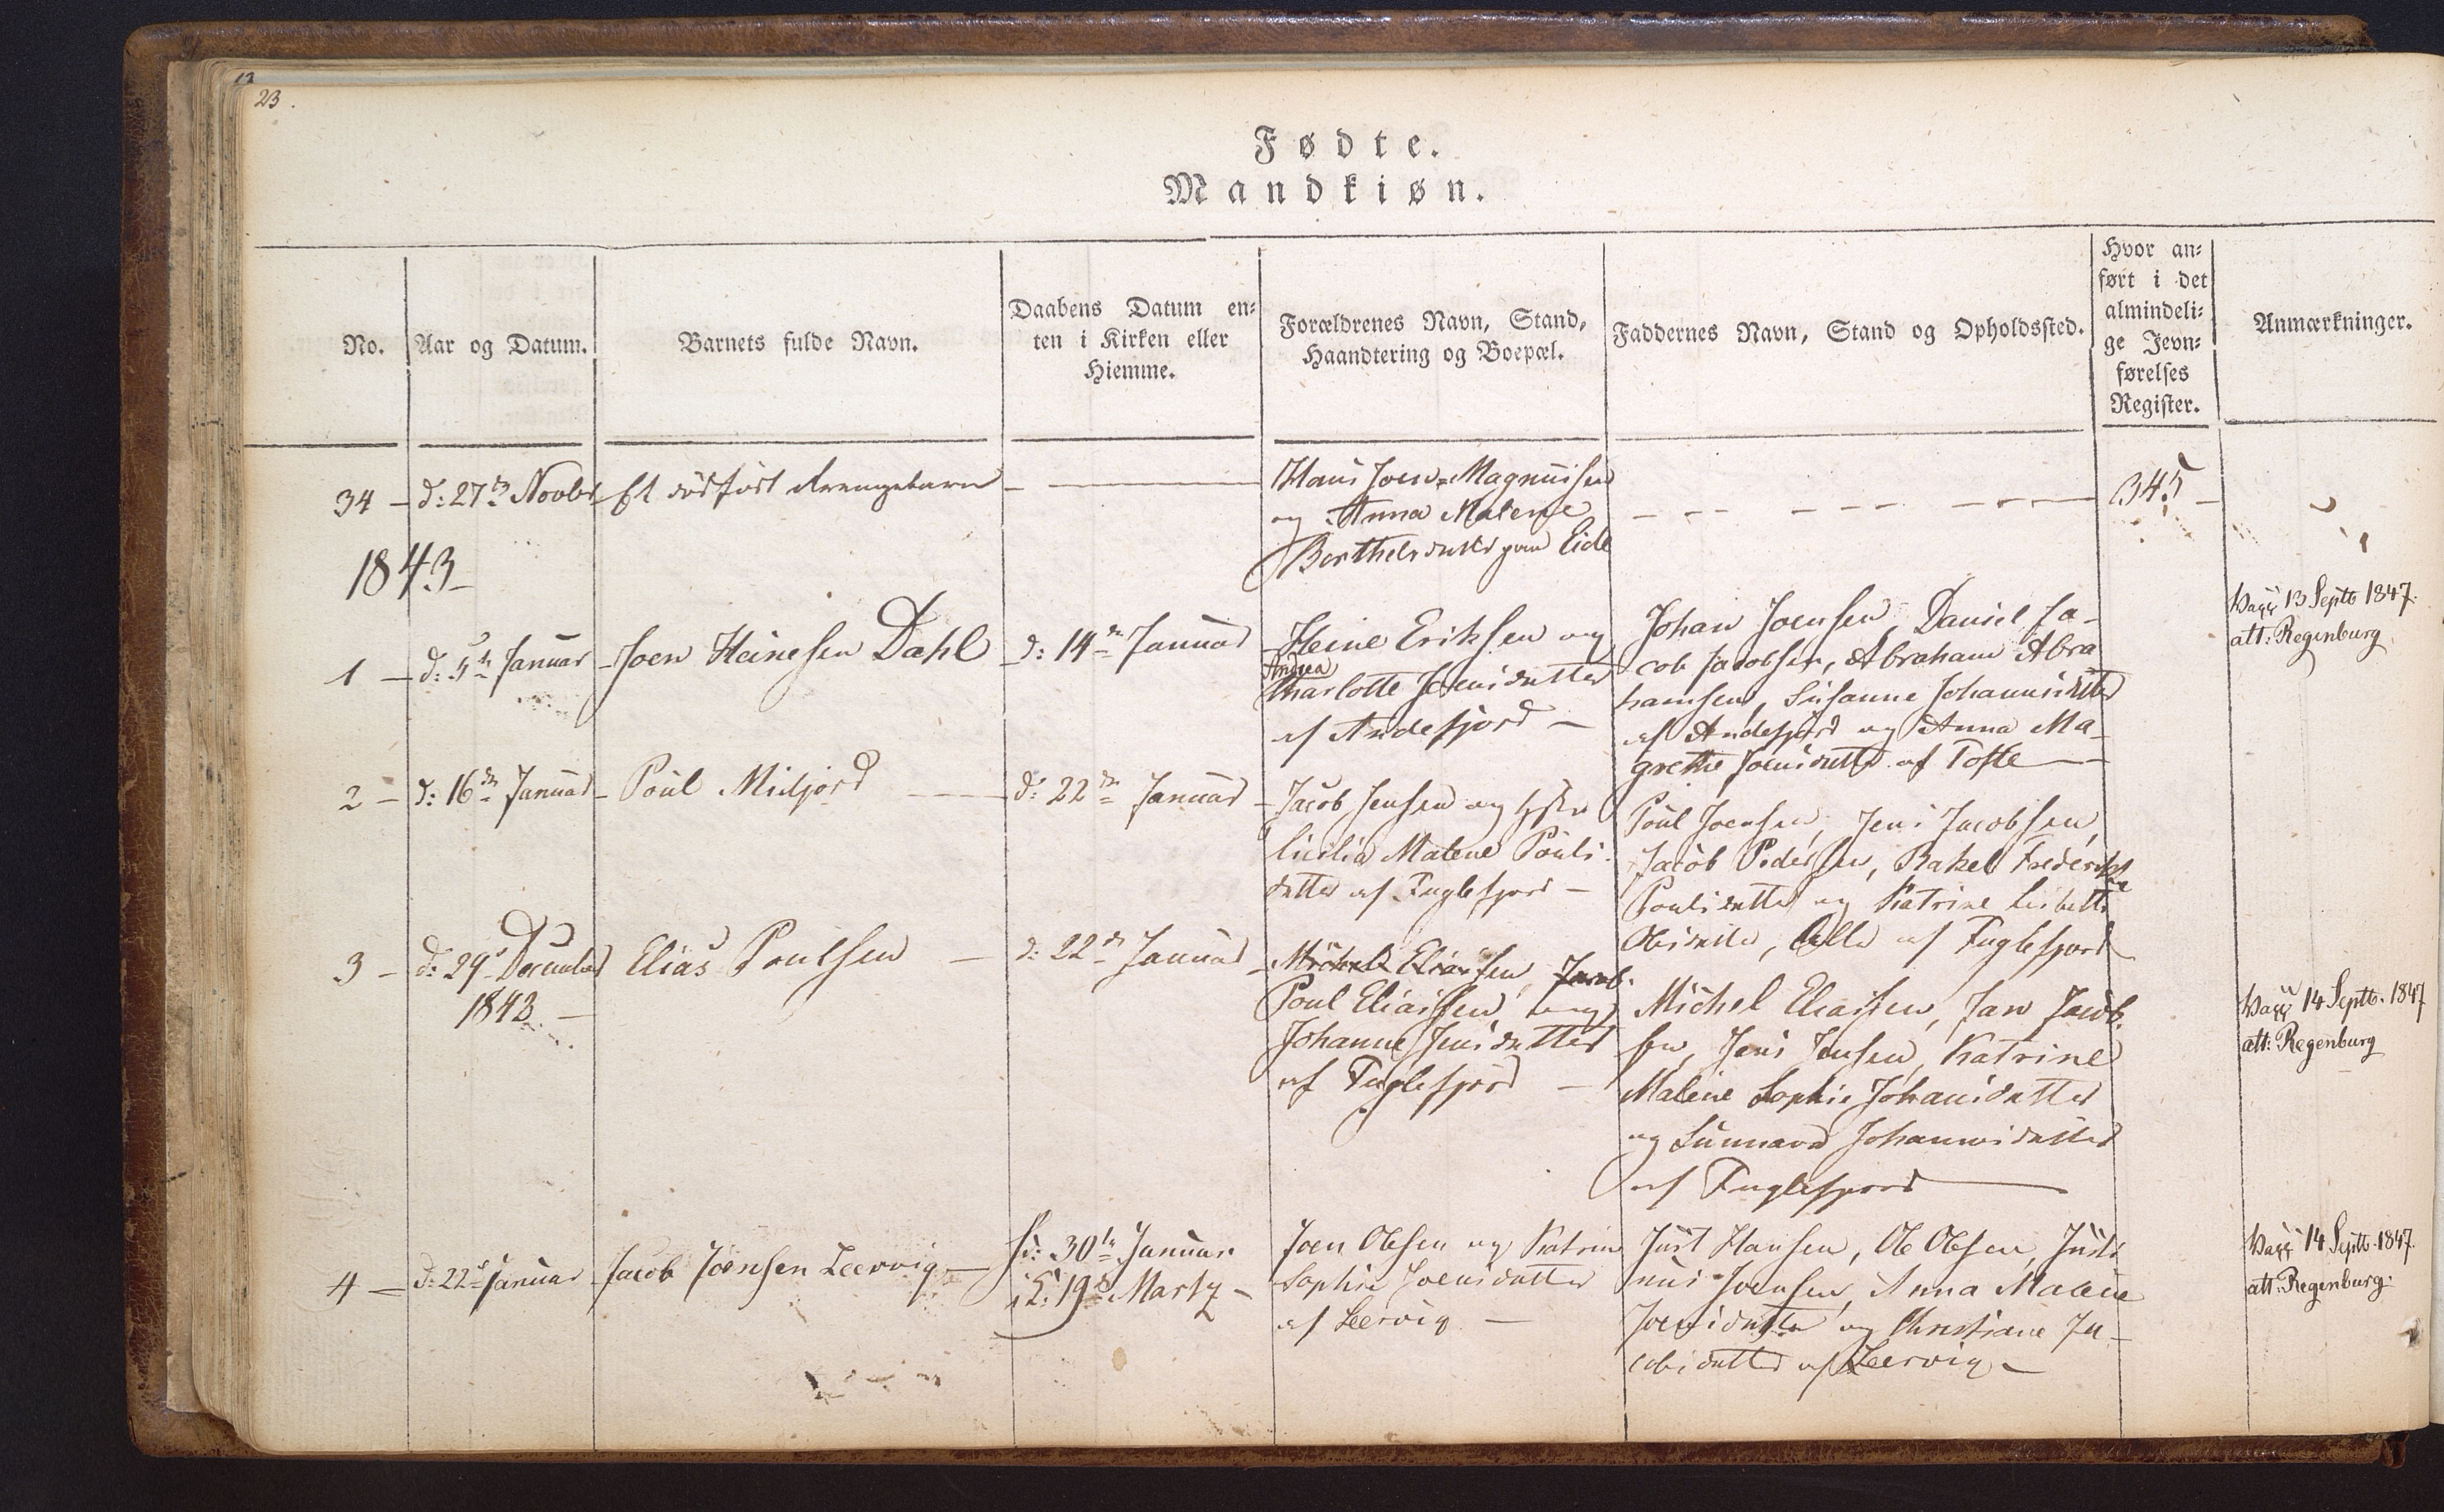 12
23.
Fødte.
Mandkiøn.
No.
Aar og Datum.
Barnets fulde Navn.
Daabens Datum en-
ten i Kirken eller
Hiemme.
Forældrenes Navn, Stand,
Haandtering og Boepæl.
Faddernes Navn, Stand og Opholdssted.
Hvor an-
ført i det
almindeli-
ge Jevn-
førelses
Register.
Anmærkninger.
34 - d: 27de Novbr
Et dødfødt drengebarn
Hans Joen Magnussen
og Anna Malene
Berthelsdatter paa Eide
345
1843
1 - d: 5te Januar
Joen Heinesen Dahl
d: 14de Januar
Heine Eriksen og
Andrea
Charlotte Joensdatter
af Andefjord -
Johan Joensen, Daniel Ja-
cob Jacobsen, Abraham Abra
hamsen, Susanne Johannesdatter
af Andefjord og Anna Ma-
grethe Joensdatter af Tofte
Vacc 13 Septb 1847.
att: Regenburg
2 - d: 16de Januar
Poul Midjord
d: 22de Januar
Jacob Jensen og Hstr
Cicilia Malene Pouls-
datter af Fuglefjord -
Poul Joensen, Jens Jacobsen,
Jacob Pedersen, Rakel Frederikke
Poulsdatter og Katrine Lisbeth
Olesdatter, Alle af Fuglefjord
3 - d: 29de December
1842. -
Elias Poulsen
d: 22de Januar
Michel Eliassen, Jacob
Poul Eliassen, og
Johanne Jensdatter
af Fuglefjord
Michel Eliassen, Jan Jacob-
sen, Jens Jensen, Katrine
Malene Sophie Johansdatter
og Sunnava Johannesdatter
af Fuglefjord
Vacc 14 Septb. 1847
att: Regenburg
4 - d: 22de Januar
Jacob Joensen Leervig
H: 30te Januar
i K: 19de Marts
Joen Olesen og Katrine
Sophie Joensdatter
af Leervig
Just Hansen, Ole Olesen, Justi
nus Joensen, Anna Malene
Joensdatter og Christiane Ja-
cobsdatter af Leervig
Vacc 14 Septb. 1847.
att: Regenburg.